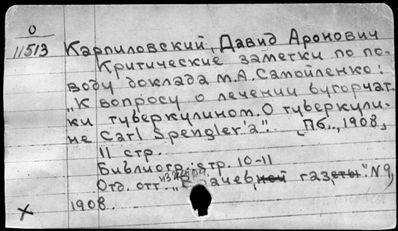 О
11513
Карпиловский, Давид Аронович
Критические заметки по по-
воду доклада М.А. Самойленко:
"К вопросу о лечении бугорчат-
ки туберкулином. О туберкули-
не Carl Spengler'a". [Пб., 1908,
11 стр.
Библиогр.: стр. 10-11
Отд. отт. газеты." N9,
1908.
X